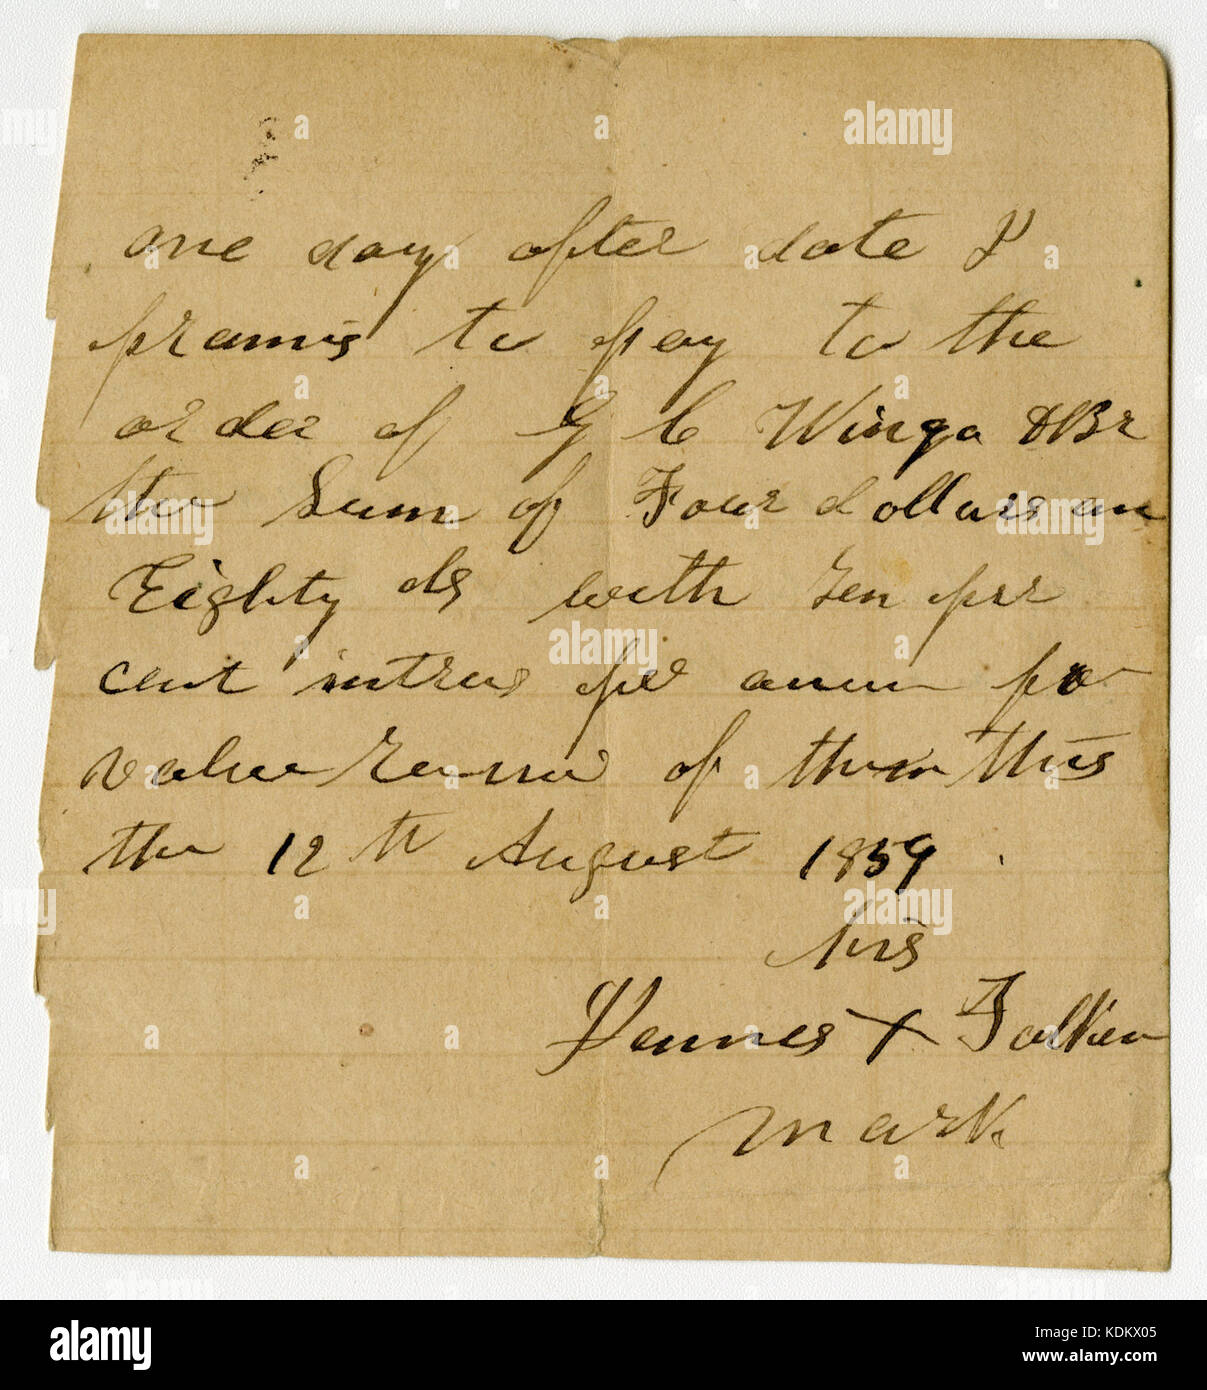 one day after date I
promis to pay to the
order of G C Wingo & Br
the Sum of Four dollars an
Eighty cts with ten per
cent intrus per anum for
value of them this
the 12 th August 1859
his
X
mark
alamy
Image ID: KDKX05
www.alamy.com